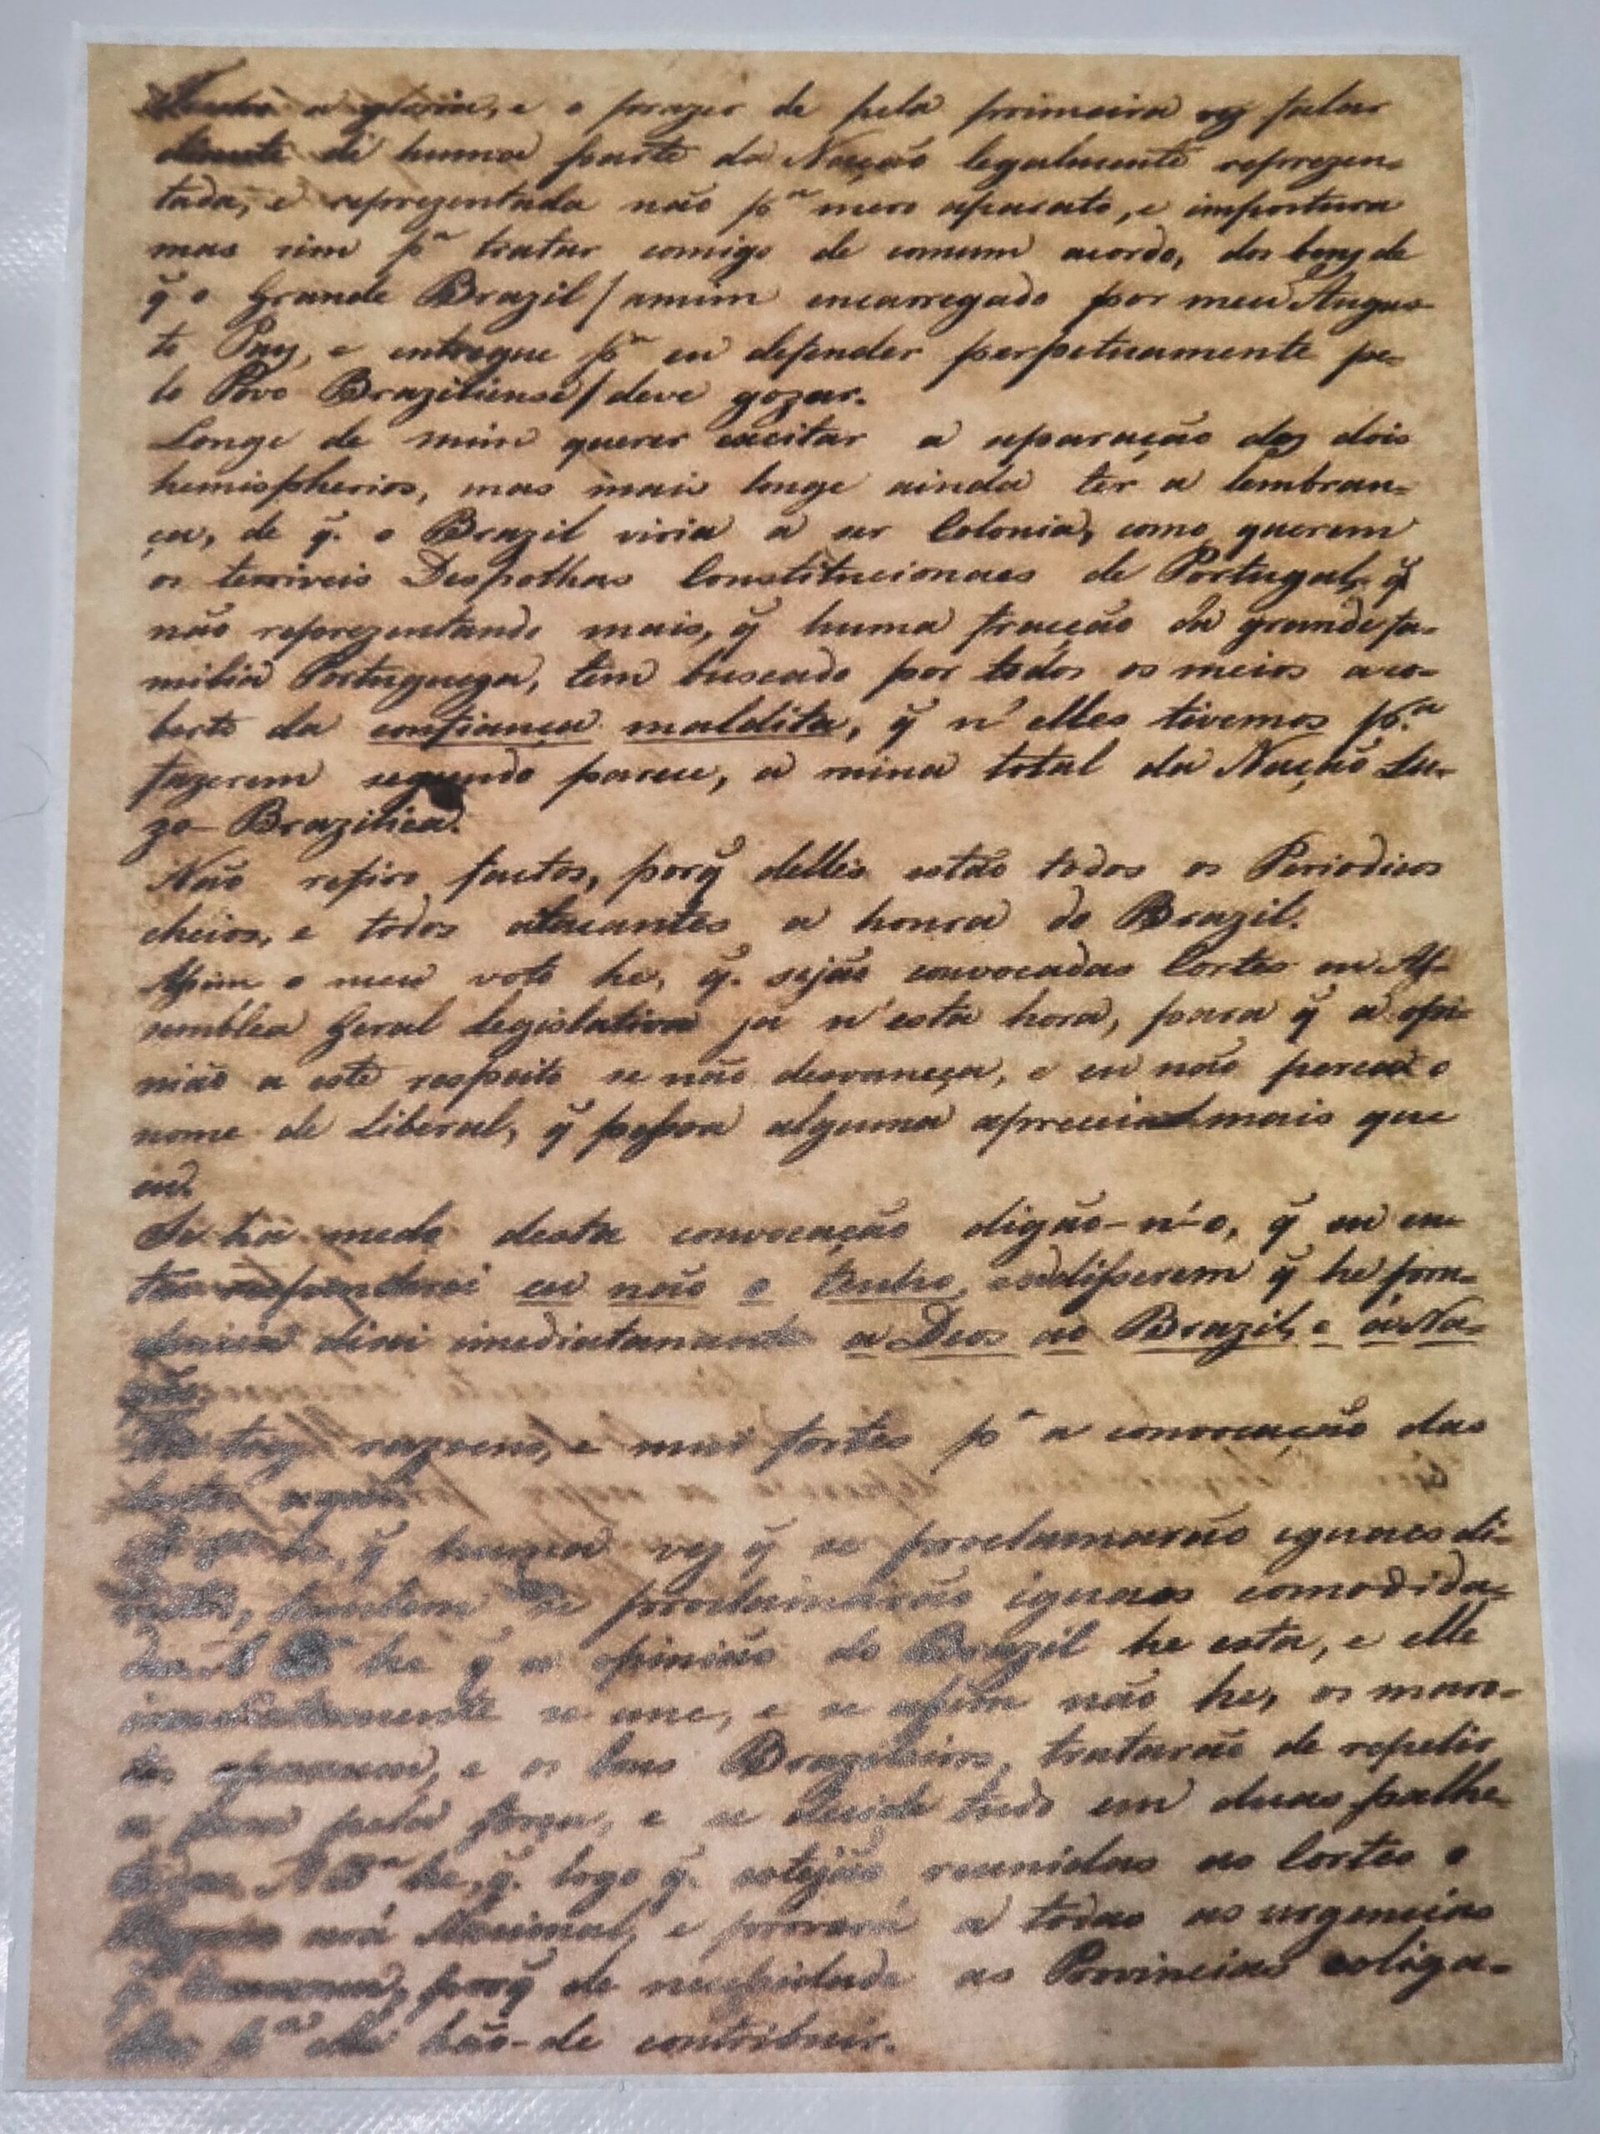 a gloria, e o prazer de pela primeira vez falar
diante de huma parte da Nação legalmente reprezen=
tada, e reprezentada não pª mero aparato, e impostura
mas sim pª tratar comigo de comum acordo, dos benz de
q̃ o Grande Brazil / amim encarregado por meu Augus-
to Pay, e entregue pª eu defender perpetuamente pe-
lo Povo Braziliense / deve gozar.
Longe de mim querer excitar a separação doz dois
hemispherios, mas mais longe ainda ter a lembran=
ça, de q̃. o Brazil viria a ser Colonia, como querem
os terriveis Despothas Constitucionaes de Portugal, q̃
não reprezentando mais, q̃ huma fracção da grande fa-
milia Portugueza, têm buscado por todos os meios a co-
berto da confiança maldita, q̃ n'elles tivemos p.ª
fazerem segundo parece, a ruina total da Nação Lu-
zo-Brazilica.
Não refiro factos, porq̃ delles estão todos os Periodicos
cheios, e todos atacantes a honra do Brazil.
Assim o meu voto he, q̃. sejão convocadas Cortes ou As-
semblea Geral Legislativa ja n'esta hora, para q̃ a opi-
nião a este respeito se não desvaneça, e eu não perca o
nome de Liberal, q̃ pessoa alguma apreciará mais que
eu.
Se ha medo desta convocação digão-n'o, q̃ eu en-
tão responderei eu não o tenho, se disserem q̃ he
direi imediatamente a Deos ao Brazil, e á Na-
ção.
razoens, e mui fortes pª a convocação das
Cortes aqui
he, q̃ huma vez q̃ se proclamarão iguaes di-
reitos, tambem se proclamarão iguaes comodida-
des A he q̃ a opinião do Brazil he esta, e elle
imediatamente se une, e se assim não he, os maro-
tos aparecem, e os bons Brazileiros, tratarão de repelir
a força pela força, e se decide tudo em duas palhe-
tadas A 3ª he, q̃. logo q̃. estejão reunidas as Cortes o
será Nacional, e proverá a todas as urgencias
q̃ porq̃ de necessidade as Provincias coliga-
das pª ella hão-de contribuir.